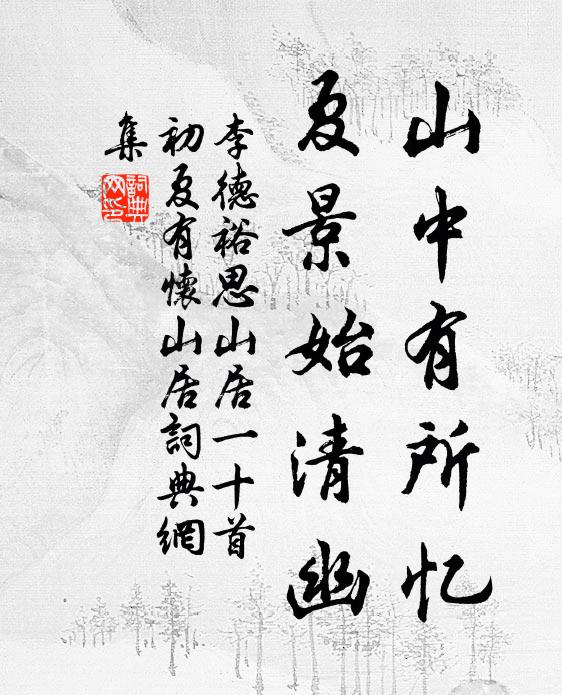 山中有所忆
夏景始清幽
李德裕思山居一十首
初夏有懷山居詞典網
集
詞典网印